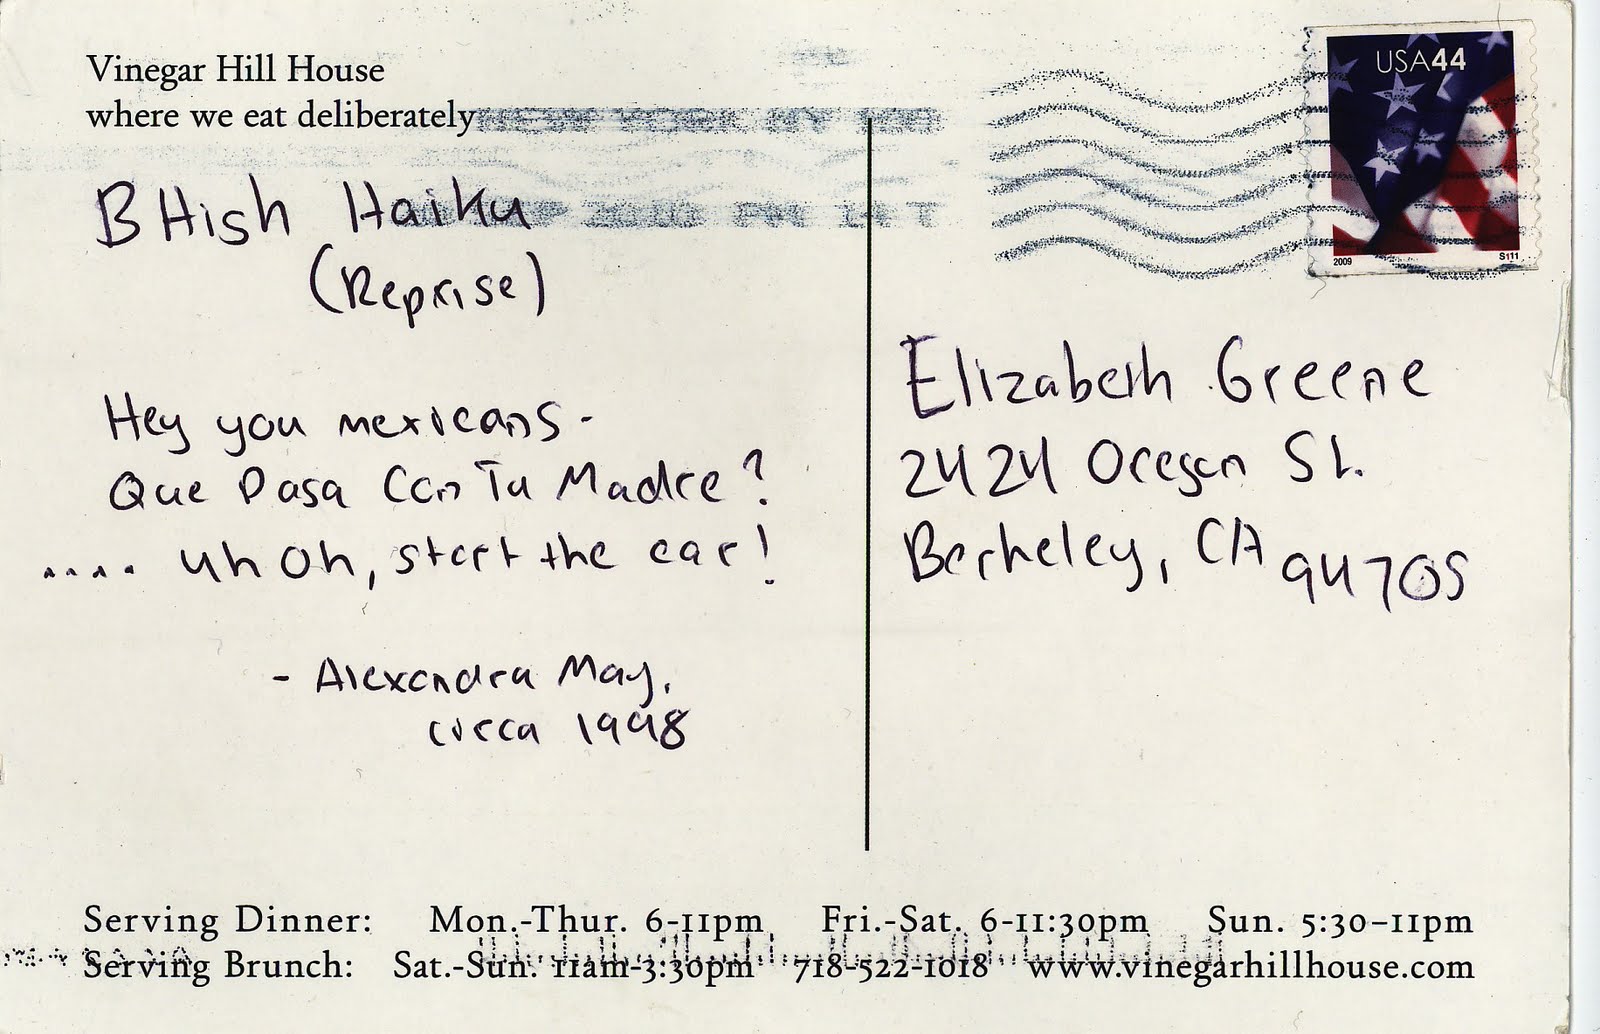 Vinegar Hill House
where we eat deliberately
USA44
2009
S111
BHish Haiku
(Reprise)
Hey you mexicans-
Que Pasa Con Tu Madre?
.... uh oh, start the car!
- Alexandra May,
circa 1998
Elizabeth Greene
2424 Oregon St.
Berkeley, CA 94705
Serving Dinner: Mon.-Thur. 6-11pm Fri.-Sat. 6-11:30pm Sun. 5:30–11pm
Serving Brunch: Sat.-Sun. 11am-3:30pm 718-522-1018 www.vinegarhillhouse.com